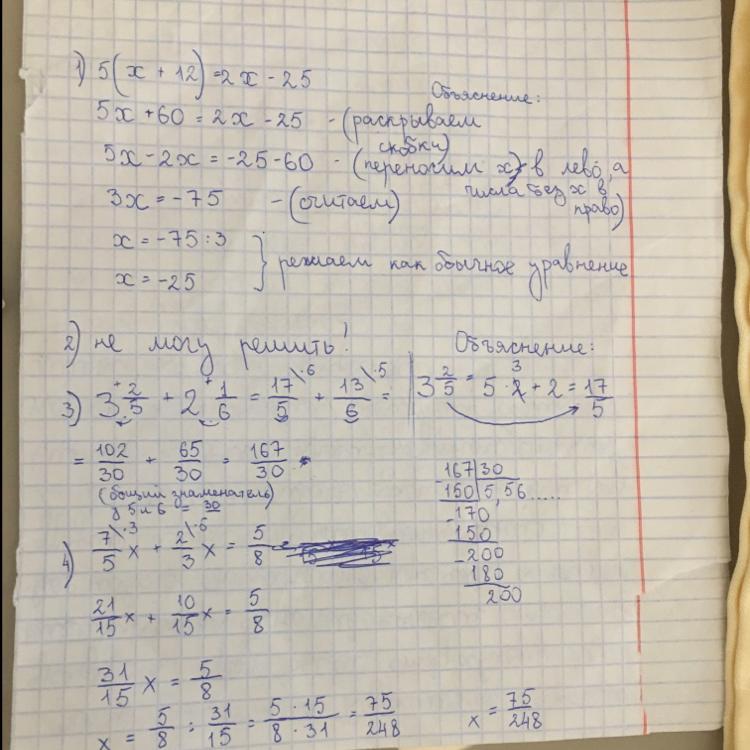 1) 5(x + 12) = 2x - 25
Объяснение:
5x + 60 = 2x - 25 - (раскрываем скобки)
5x - 2x = -25 - 60 - (переносим x в лево, а числа без x в право)
3x = -75 - (считаем)
x = -75 : 3
x = -25 } решаем как обычное уравнение
2) не могу решить!
Объяснение:
3) 3 2/5 + 2 1/6 = 17/5 \·6 + 13/6 \·5 =
3 2/5 = 5 · 3 + 2 = 17/5
= 102/30 + 65/30 = 167/30
(общий знаменатель)
у 5 и 6 = 30
167 | 30
150 | 5,56.....
-170
150
-200
180
200
4) 7/5 \·3 x + 2/3 \·5 x = 5/8
21/15 x + 10/15 x = 5/8
31/15 x = 5/8
x = 5/8 : 31/15 = 5 · 15/8 · 31 = 75/248
x = 75/248